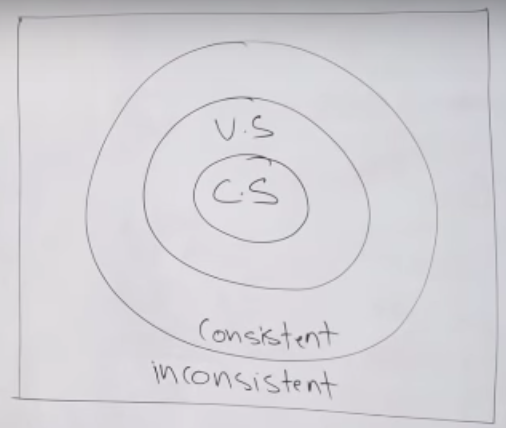 V.S
C.S
Consistent
inconsistent